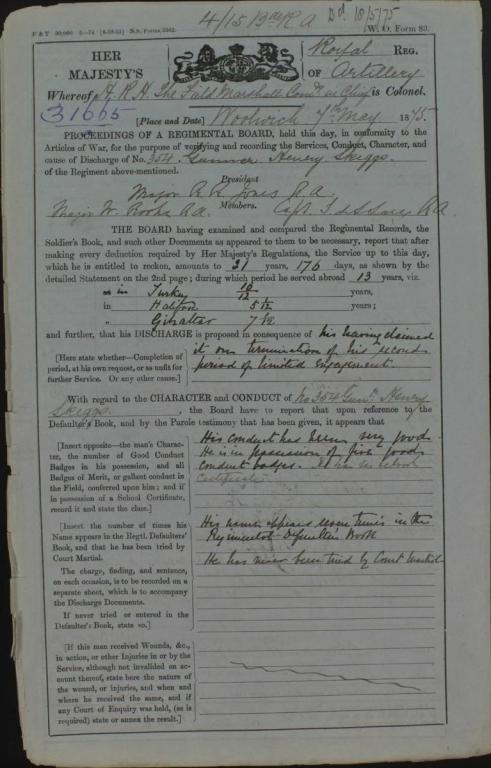 4/15 Bde R A
Bd. 18/5/75
F & T 20,000 6—74
W. O. Form 83.
HER
MAJESTY'S
Royal REG.
OF Artillery
Whereof H. R. H. The Field Marshall Comdg in Chief is Colonel.
31665
[Place and Date] Woolwich 7th May 1875.
PROCEEDINGS OF A REGIMENTAL BOARD, held this day, in conformity to the
Articles of War, for the purpose of verifying and recording the Services, Conduct, Character, and
cause of Discharge of No. 354 Gunner Henry Skeggs.
of the Regiment above-mentioned.
President
Major R. L. Jones R A
Members.
Major W. Rooke R.A.
Capt. R A
THE BOARD having examined and compared the Regimental Records, the
Soldier's Book, and such other Documents as appeared to them to be necessary, report that after
making every deduction required by Her Majesty's Regulations, the Service up to this day,
which he is entitled to reckon, amounts to 21 years, 176 days, as shown by the
detailed Statement on the 2nd page; during which period he served abroad 13 years, viz.
in Turkey 10/12 years,
in Halifax 5 years;
" Gibraltar 7
and further, that his DISCHARGE is proposed in consequence of his having claimed
it on termination of his second
period of limited engagement.
[Here state whether—Completion of
period, at his own request, or as unfit for
further Service. Or any other cause.]
With regard to the CHARACTER and CONDUCT of No 354 Gunr Henry
Skeggs, the Board have to report that upon reference to the
Defaulter's Book, and by the Parole testimony that has been given, it appears that
[Insert opposite—the man's Charac-
ter, the number of Good Conduct
Badges in his possession, and all
Badges of Merit, or gallant conduct in
the Field, conferred upon him; and if
in possession of a School Certificate,
record it and state the class.]
His conduct has been very good.
He is in possession of five good
conduct badges. school
certificate
[Insert the number of times his
Name appears in the Regtl. Defaulters'
Book, and that he has been tried by
Court Martial.
The charge, finding, and sentence,
on each occasion, is to be recorded on a
separate sheet, which is to accompany
the Discharge Documents.
If never tried or entered in the
Defaulter's Book, state so.]
His name appears seven times in the
Regimental Defaulter Book
He has never been tried by Court Martial
[If this man received Wounds, &c.,
in action, or other Injuries in or by the
Service, although not invalided on ac-
count thereof, state here the nature of
the wound, or injuries, and when and
where he received the same, and if
any Court of Enquiry was held, (as is
required) state or annex the result.]